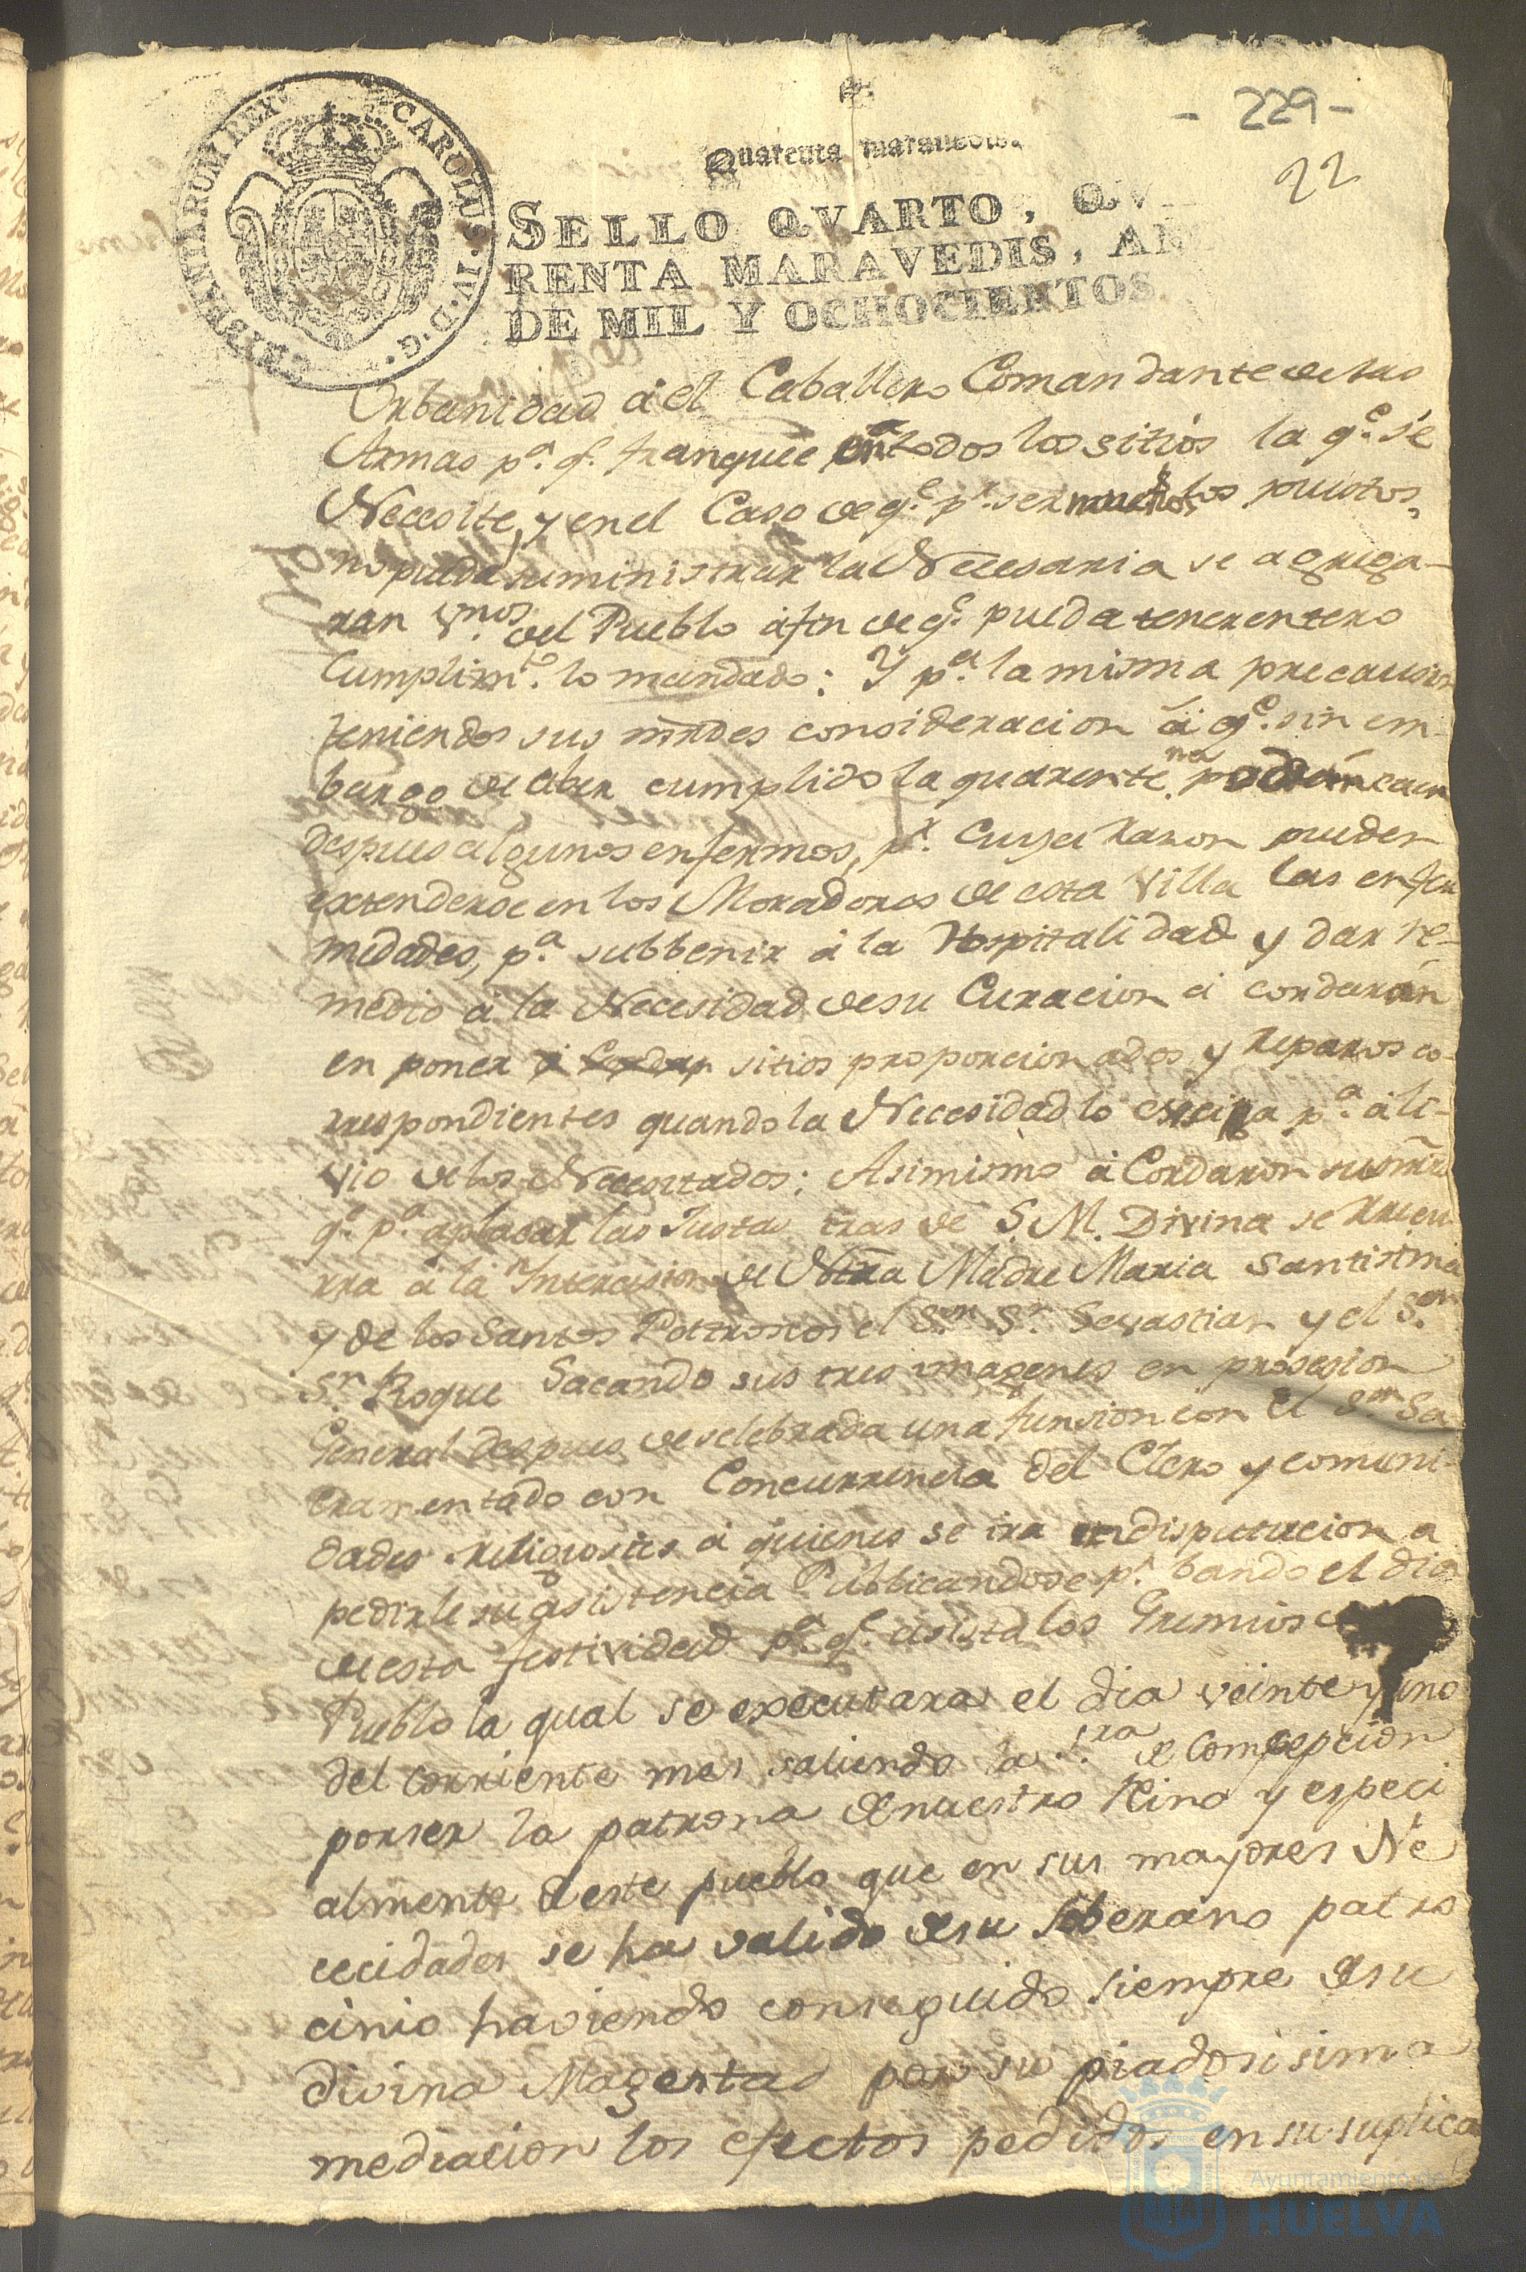 - 229 -
22
Quarenta maravedis.
CAROLUS · IV · D · G ·
SELLO QVARTO, QV
RENTA MARAVEDIS, AÑ
DE MIL Y OCHOCIENTOS
Urbanidad á el Caballero Comandante de las
Armas pª. qᵉ. franquee en todos los sitios la qᵉ. se
Necesite, y en el Caso de qᵉ. pʳ. ser muchos los puestos,
no pueda suministrar la Necesaria se agrega-
ran Vnos. del Pueblo á fin de qᵉ. pueda tener entero
Cumplimᵗᵒ. lo mandado: Y pª. la misma precausion
teniendo sus mrds consideracion á qᵉ. sin em-
bargo de aber cumplido la quarentena podrán caer
despues algunos enfermos, pʳ. Cuya Razon pueden
extenderse en los Moradores de esta Villa las enfer
medades, pª. subbenir á la Hospitalidad y dar re-
medio á la Necesidad de su Curacion á cordarón
en poner sitios proporcionados y Reparos co-
rrespondientes quando la Necesidad lo exsija pª. ali-
vio de los Necesitados: Asimismo á Cordaron sus mrd
qᵉ. pª. aplacar las Justa iras de S. M. Divina se Recu
rra á la Intercesion de Ntra Madre Maria Santisima
y de los Santos Patronos el Sᵒʳ. Sⁿ. Sevastian y el Sᵒʳ.
Sⁿ. Roque Sacando sus tres imagenes en prosesion
General despues de selebrada una funsion con el Sᵒʳ. Sa
cramentado con Concurrencia del Clero y comuni-
dades religiosas á quienes se ira en disputacion a
pedirle su asistencia Publicandose pʳ. bando el dia
de esta festividad pª. qᵉ. asista los Gremios
Pueblo la qual se executara el dia veinte y uno
del corriente mes saliendo la Sʳª de Comcepcion
por ser la patrona de nuestro Reino y especi
almente deste pueblo que en sus mayores Ne
cecidades se ha valido de su soberano patro
cinio haviendo conseguido siempre de su
divina Magestad por su piadosisima
mediacion los efectos pedidos en su suplica
Ayuntamiento de
HUELVA